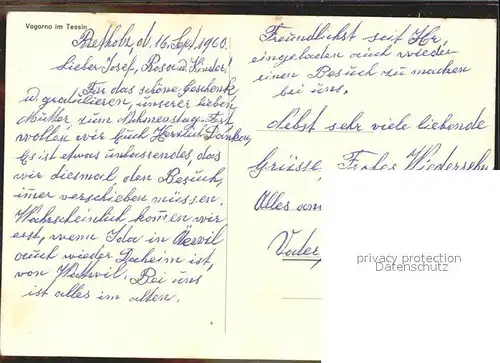 Vogorno im Tessin
Bretholz, d. 16. Sept. 1960.
Lieber Josef, Rosa u. Kinder!
Für das schöne Geschenk
u. gratulieren, unserer lieben
Mutter, zum Nahmenstag-Fest
wollen wir Euch Herzlich Danken,
Es ist etwas unbassendes, das
wir diesmal den Besuch,
imer verschieben müssen.
Wahrscheinlich komen wir
erst, wenn Ida in
auch wieder Daheim ist,
von Wattwil. Bei uns
ist alles im alten.
Freundlichst seit Ihr,
eingeladen auch wieder
einen Besuch zu machen
bei uns.
Nebst sehr viele liebende
Grüsse, Frohes Wiedersehn
Alles
Vater,
privacy protection
Datenschutz